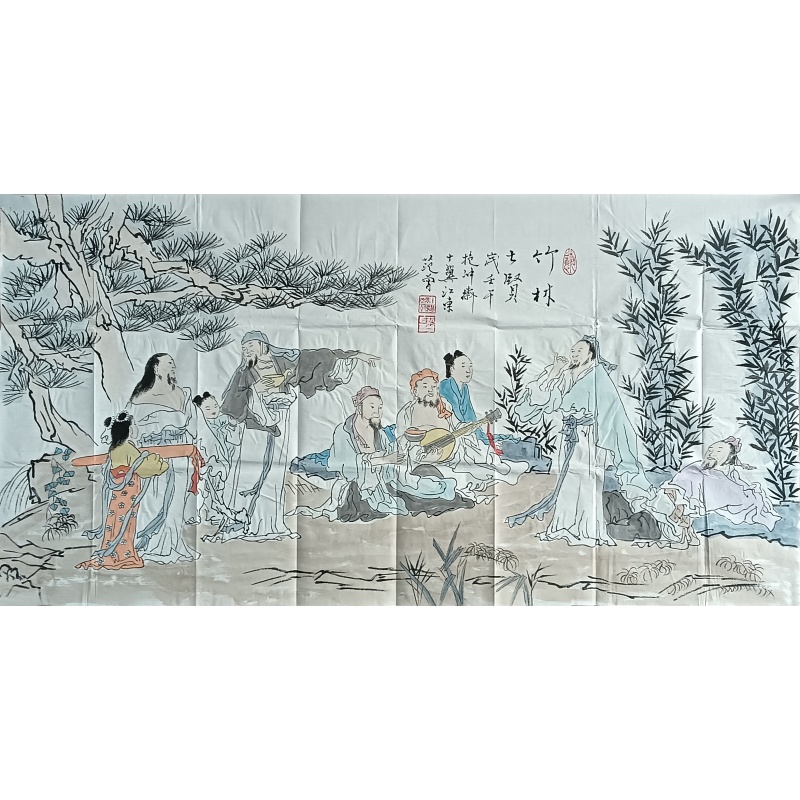 竹林
七賢
歲壬午
抱冲齋
十翼江東
范曾